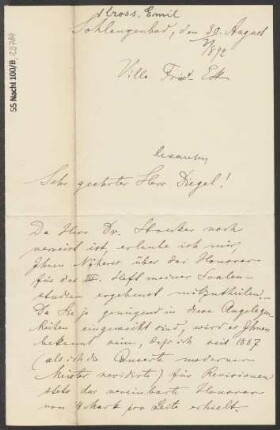 Kross, Emil
55 Nachl 100/B
Schlangenbad, den 30. August
1892
Villa Frid. Eck
Sehr geehrter Herr Diegel!
Da Herr Dr. Strecker noch
verreist ist, erlaube ich mir,
Ihnen Näheres über das Honorar
für das III. Heft meiner
studien ergebenst mitzutheilen.
Da Sie ja genügend in diese Angelegen-
heiten eingeweiht sind, wird es Ihnen
bekannt sein, daß ich seit 1887
(als ich die Concerte moderner
Meister revidirte) für Revisionen
stets das vereinbarte Honorar
von 4 Mark pro Seite erhielt.